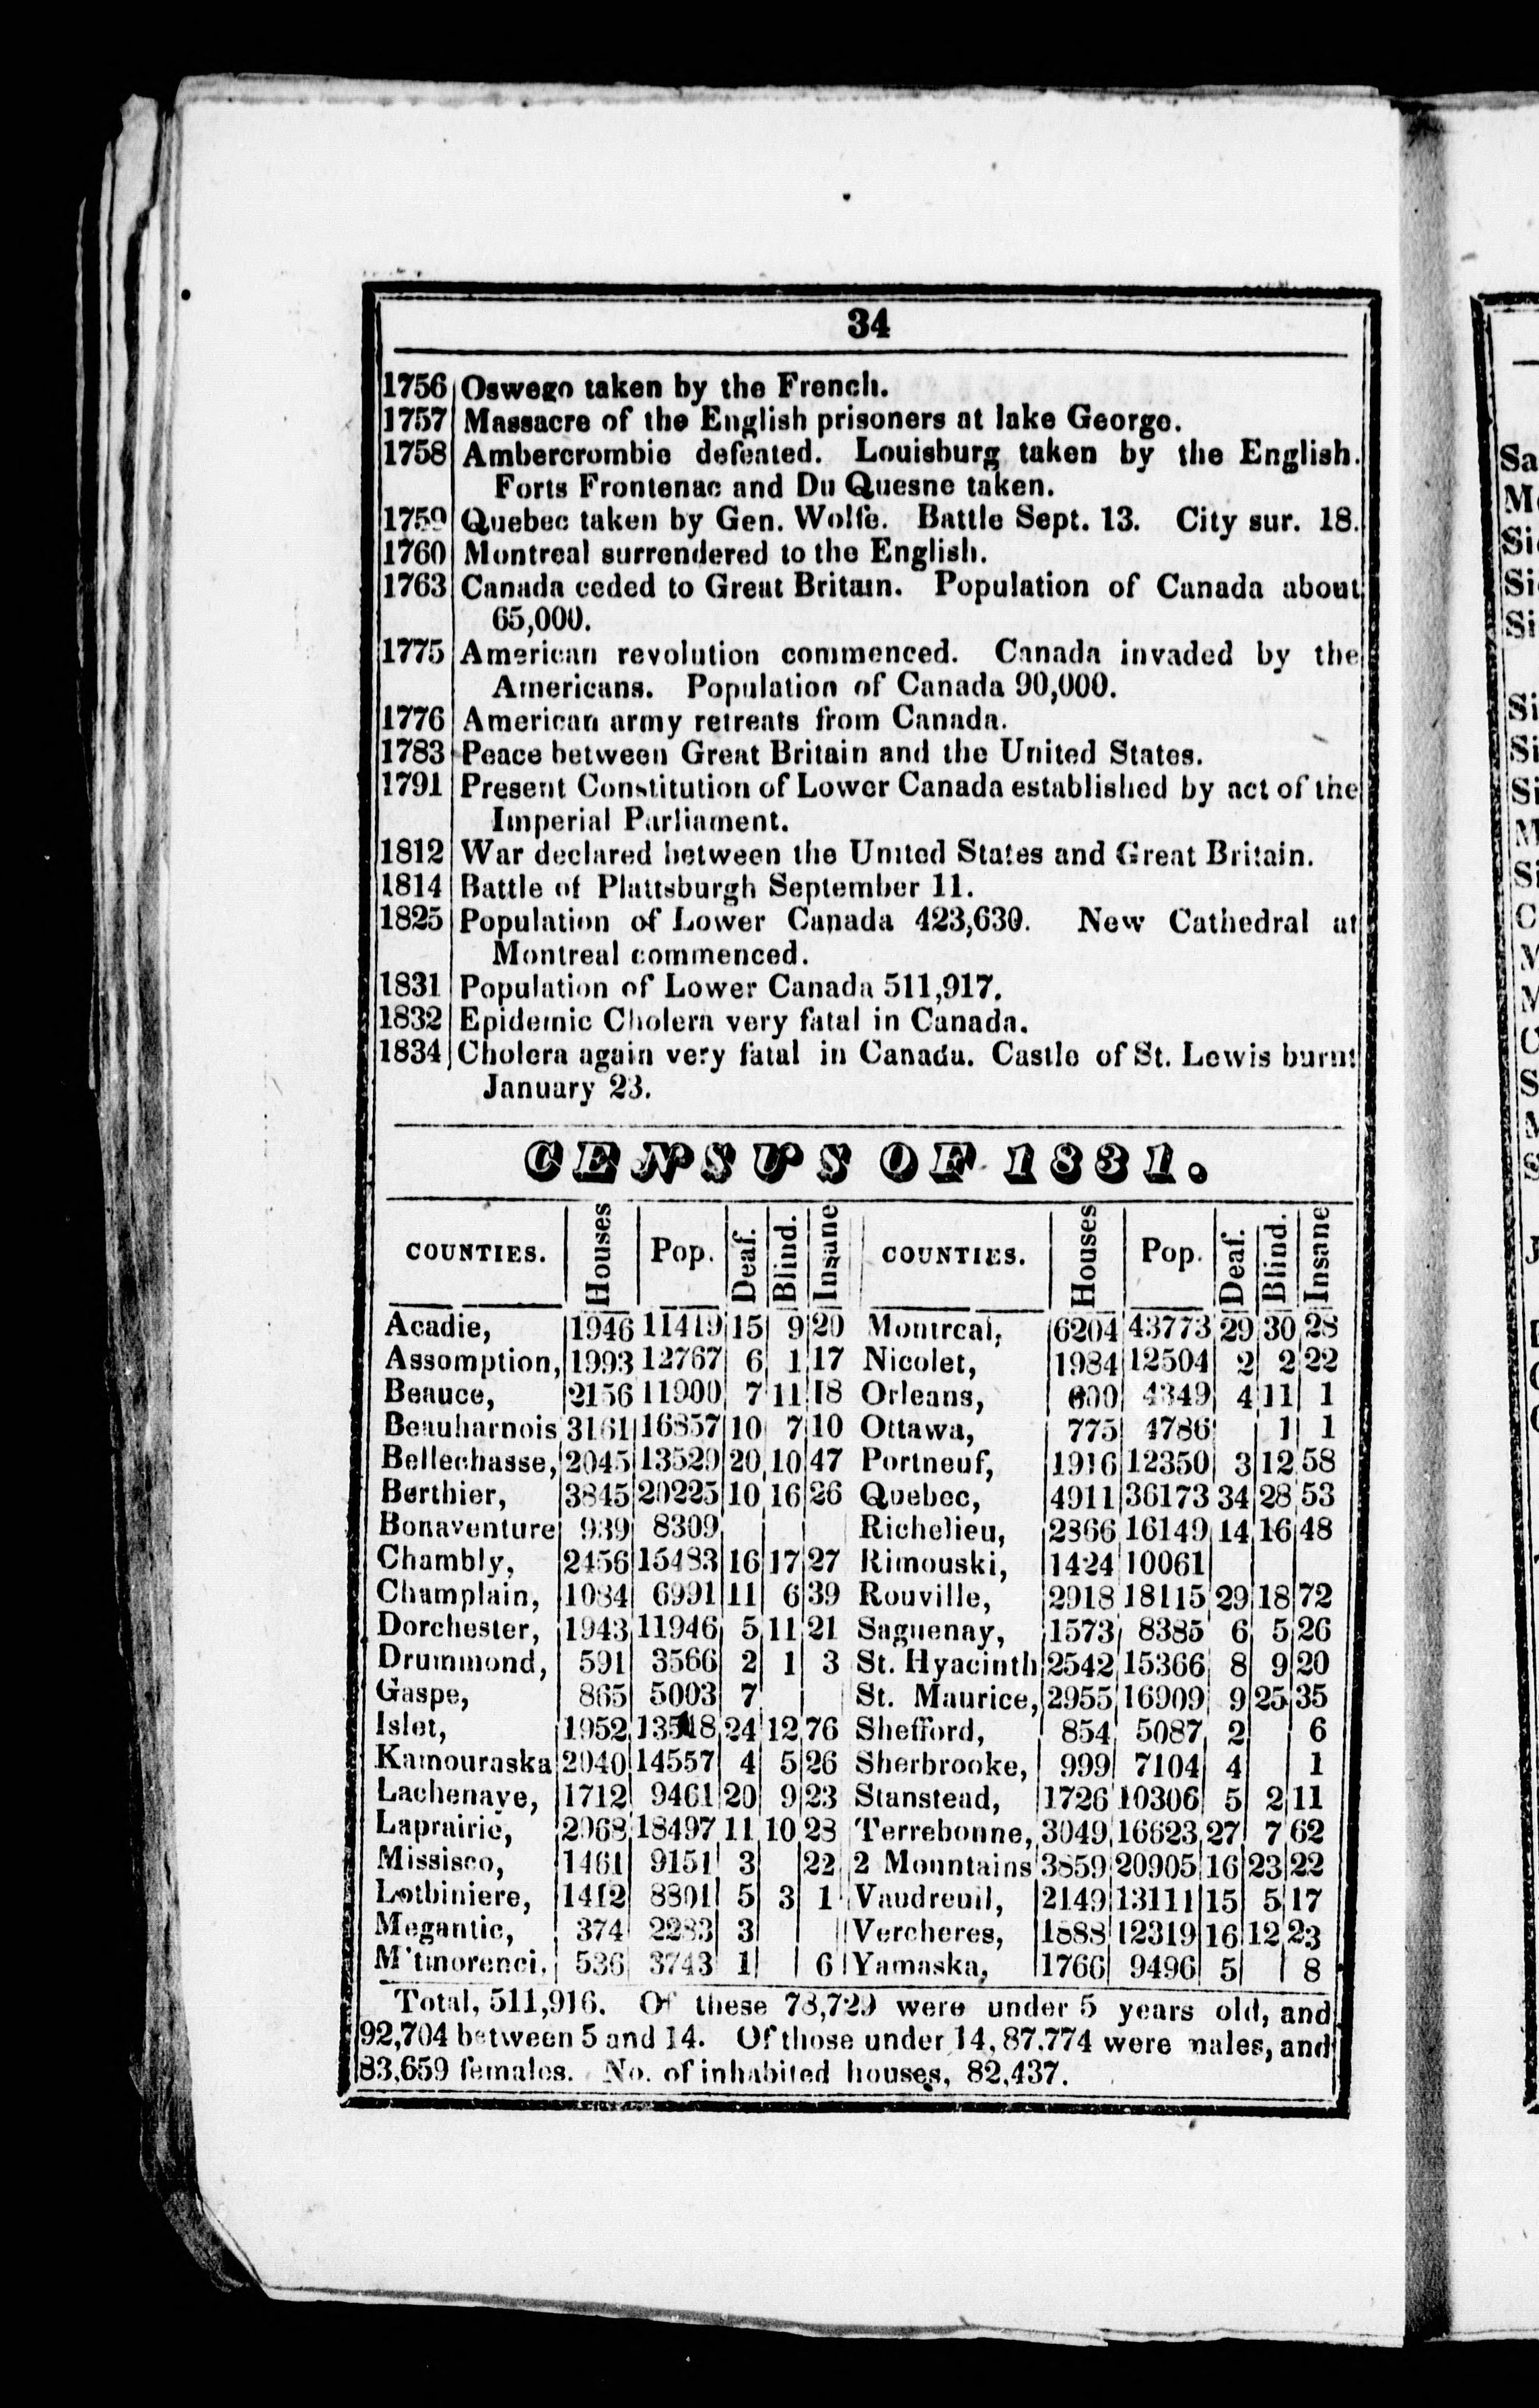 34
1756 Oswego taken by the French.
1757 Massacre of the English prisoners at lake George.
1758 Ambercrombie defeated. Louisburg taken by the English.
Forts Frontenac and Du Quesne taken.
1759 Quebec taken by Gen. Wolfe. Battle Sept. 13. City sur. 18.
1760 Montreal surrendered to the English.
1763 Canada ceded to Great Britain. Population of Canada about
65,000.
1775 American revolution commenced. Canada invaded by the
Americans. Population of Canada 90,000.
1776 American army retreats from Canada.
1783 Peace between Great Britain and the United States.
1791 Present Constitution of Lower Canada established by act of the
Imperial Parliament.
1812 War declared between the United States and Great Britain.
1814 Battle of Plattsburgh September 11.
1825 Population of Lower Canada 423,630. New Cathedral at
Montreal commenced.
1831 Population of Lower Canada 511,917.
1832 Epidemic Cholera very fatal in Canada.
1834 Cholera again very fatal in Canada. Castle of St. Lewis burnt
January 23.
CENSUS OF 1831.
COUNTIES. Houses Pop. Deaf. Blind. Insane COUNTIES. Houses Pop. Deaf. Blind. Insane
Acadie, 1946 11419 15 9 20 Montreal, 6204 43773 29 30 28
Assomption, 1993 12767 6 1 17 Nicolet, 1984 12504 2 2 22
Beauce, 2156 11900 7 11 18 Orleans, 600 4349 4 11 1
Beauharnois 3161 16857 10 7 10 Ottawa, 775 4786 1 1
Bellechasse, 2045 13529 20 10 47 Portneuf, 1916 12350 3 12 58
Berthier, 3845 20225 10 16 26 Quebec, 4911 36173 34 28 53
Bonaventure 939 8309 Richelieu, 2366 16149 14 16 48
Chambly, 2456 15483 16 17 27 Rimouski, 1424 10061
Champlain, 1084 6991 11 6 39 Rouville, 2918 18115 29 18 72
Dorchester, 1943 11946 5 11 21 Saguenay, 1573 8385 6 5 26
Drummond, 591 3566 2 1 3 St. Hyacinth 2542 15366 8 9 20
Gaspe, 865 5003 7 St. Maurice, 2955 16909 9 25 35
Islet, 1952 24 12 76 Shefford, 854 5087 2 6
Kamouraska 2040 14557 4 5 26 Sherbrooke, 999 7104 4 1
Lachenaye, 1712 9461 20 9 23 Stanstead, 1726 10306 5 2 11
Laprairie, 2968 18497 11 10 28 Terrebonne, 3049 16623 27 7 62
Missisco, 1461 9151 3 22 2 Mountains 3859 20905 16 23 22
Lotbiniere, 1412 5 3 1 Vaudreuil, 2149 13111 15 5 17
Megantic, 374 2283 3 Vercheres, 1888 12319 16 12 23
M'tmorenci, 536 3743 1 6 Yamaska, 1766 9496 5 8
Total, 511,916. Of these 78,729 were under 5 years old, and
92,704 between 5 and 14. Of those under 14, 87,774 were males, and
83,659 females. No. of inhabited houses, 82,437.